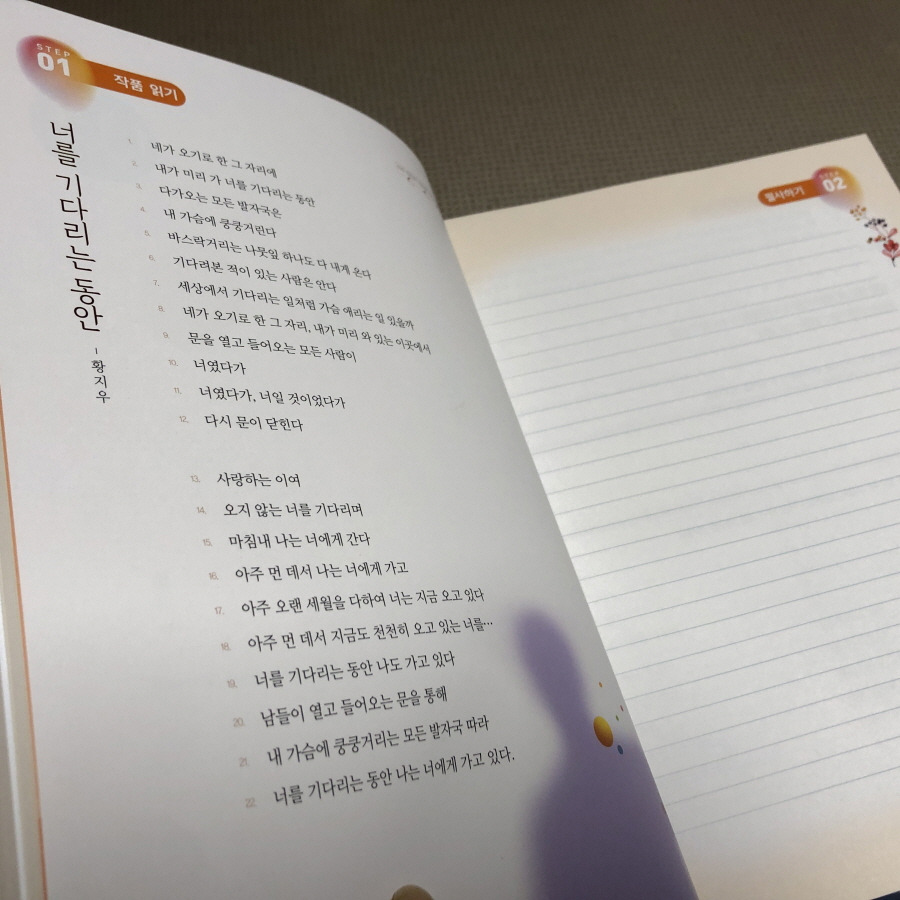 STEP
01
작품 읽기
너를 기다리는 동안
- 황지우
1. 네가 오기로 한 그 자리에
2. 내가 미리 가 너를 기다리는 동안
3. 다가오는 모든 발자국은
4. 내 가슴에 쿵쿵거린다
5. 바스락거리는 나뭇잎 하나도 다 내게 온다
6. 기다려본 적이 있는 사람은 안다
7. 세상에서 기다리는 일처럼 가슴 애리는 일 있을까
8. 네가 오기로 한 그 자리, 내가 미리 와 있는 이곳에서
9. 문을 열고 들어오는 모든 사람이
10. 너였다가
11. 너였다가, 너일 것이었다가
12. 다시 문이 닫힌다
13. 사랑하는 이여
14. 오지 않는 너를 기다리며
15. 마침내 나는 너에게 간다
16. 아주 먼 데서 나는 너에게 가고
17. 아주 오랜 세월을 다하여 너는 지금 오고 있다
18. 아주 먼 데서 지금도 천천히 오고 있는 너를…
19. 너를 기다리는 동안 나도 가고 있다
20. 남들이 열고 들어오는 문을 통해
21. 내 가슴에 쿵쿵거리는 모든 발자국 따라
22. 너를 기다리는 동안 나는 너에게 가고 있다.
STEP
02
필사하기